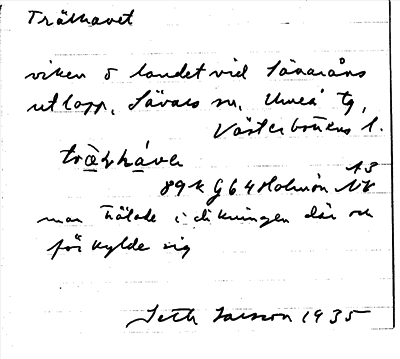 Trälhavet
viken o landet vid Sävaråns
utlopp, Sävars sn, Umeå tg,
Västerbottens l.
träḷháve
89 k G 6 4 Holmön NV
man trälade i dikningen där och
förkylde sig
Seth Larsson 1935